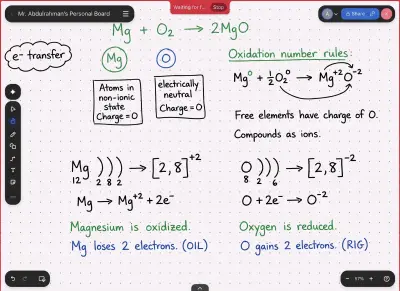 Mr. Abdulrahman's Personal Board
Waiting for f...
Stop
A
Share
Mg + O₂ → 2MgO
e⁻ transfer
Mg
O
Atoms in
non-ionic
state
Charge = 0
electrically
neutral
Charge = 0
Oxidation number rules:
Mg⁰ + ½O₂⁰ → Mg⁺²O⁻²
Free elements have charge of 0.
Compounds as ions.
Mg ) ) ) → [2, 8]⁺²
12 2 8 2
Mg → Mg⁺² + 2e⁻
Magnesium is oxidized.
Mg loses 2 electrons. (OIL)
O ) ) ) → [2, 8]⁻²
8 2 6
O + 2e⁻ → O⁻²
Oxygen is reduced.
O gains 2 electrons. (RIG)
57%